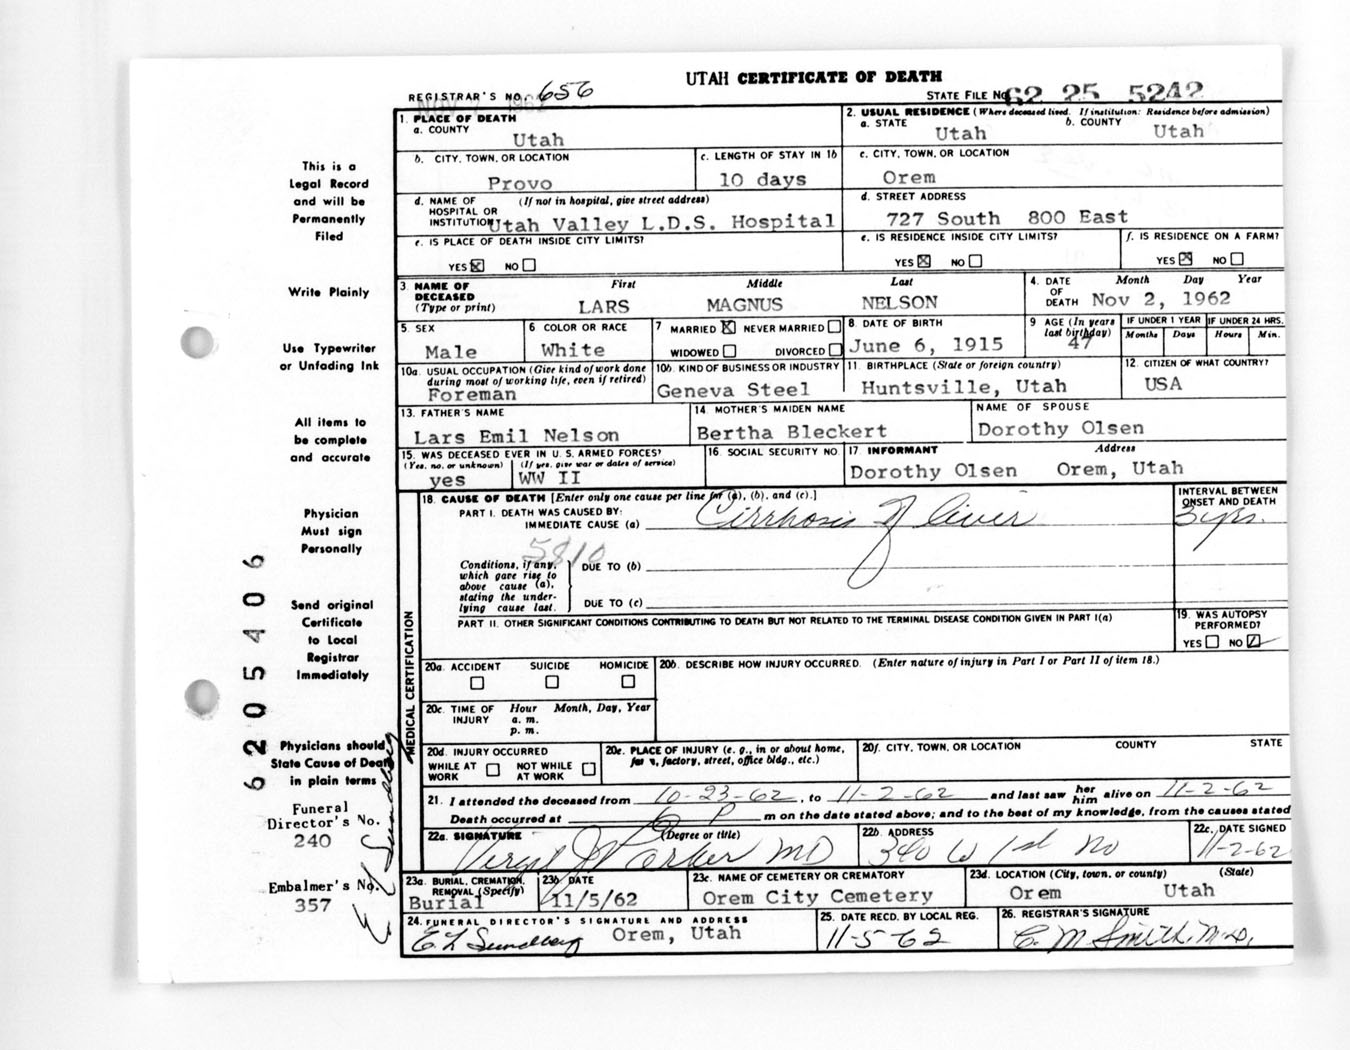 UTAH CERTIFICATE OF DEATH
REGISTRAR'S NO. 656
STATE FILE NO. 62 25 5242
1. PLACE OF DEATH
a. COUNTY
Utah
2. USUAL RESIDENCE (Where deceased lived. If institution: Residence before admission)
a. STATE b. COUNTY
Utah Utah
b. CITY, TOWN, OR LOCATION
Provo
c. LENGTH OF STAY IN 1b
10 days
c. CITY, TOWN, OR LOCATION
Orem
d. NAME OF (If not in hospital, give street address)
HOSPITAL OR
INSTITUTION Utah Valley L.D.S. Hospital
d. STREET ADDRESS
727 South 800 East
e. IS PLACE OF DEATH INSIDE CITY LIMITS?
YES ☒ NO ☐
e. IS RESIDENCE INSIDE CITY LIMITS?
YES ☒ NO ☐
f. IS RESIDENCE ON A FARM?
YES ☒ NO ☐
3. NAME OF DECEASED (Type or print)
First Middle Last
LARS MAGNUS NELSON
4. DATE OF DEATH
Month Day Year
Nov 2, 1962
5. SEX
Male
6 COLOR OR RACE
White
7 MARRIED ☒ NEVER MARRIED ☐
WIDOWED ☐ DIVORCED ☐
8. DATE OF BIRTH
June 6, 1915
9 AGE (In years last birthday)
47
IF UNDER 1 YEAR
Months Days
IF UNDER 24 HRS.
Hours Min.
10a. USUAL OCCUPATION (Give kind of work done
during most of working life, even if retired)
Foreman
10b. KIND OF BUSINESS OR INDUSTRY
Geneva Steel
11. BIRTHPLACE (State or foreign country)
Huntsville, Utah
12. CITIZEN OF WHAT COUNTRY?
USA
13. FATHER'S NAME
Lars Emil Nelson
14. MOTHER'S MAIDEN NAME
Bertha Bleckert
NAME OF SPOUSE
Dorothy Olsen
15. WAS DECEASED EVER IN U. S. ARMED FORCES?
(Yes, no, or unknown) (If yes, give war or dates of service)
yes WW II
16. SOCIAL SECURITY NO.
17 INFORMANT Address
Dorothy Olsen Orem, Utah
18. CAUSE OF DEATH [Enter only one cause per line for (a), (b), and (c).]
PART I. DEATH WAS CAUSED BY:
IMMEDIATE CAUSE (a) Cirrhosis of liver
INTERVAL BETWEEN
ONSET AND DEATH
3 yrs.
5810
Conditions, if any,
which gave rise to
above cause (a),
stating the under-
lying cause last.
DUE TO (b)
DUE TO (c)
PART II. OTHER SIGNIFICANT CONDITIONS CONTRIBUTING TO DEATH BUT NOT RELATED TO THE TERMINAL DISEASE CONDITION GIVEN IN PART I(a)
19. WAS AUTOPSY
PERFORMED?
YES ☐ NO ☑
20a. ACCIDENT SUICIDE HOMICIDE
☐ ☐ ☐
20b. DESCRIBE HOW INJURY OCCURRED. (Enter nature of injury in Part I or Part II of item 18.)
20c. TIME OF INJURY
Hour Month, Day, Year
a. m.
p. m.
20d. INJURY OCCURRED
WHILE AT WORK ☐ NOT WHILE AT WORK ☐
20e. PLACE OF INJURY (e. g., in or about home,
farm, factory, street, office bldg., etc.)
20f. CITY, TOWN, OR LOCATION COUNTY STATE
21. I attended the deceased from 10-23-62, to 11-2-62 and last saw her him alive on 11-2-62
Death occurred at 6 P m on the date stated above; and to the best of my knowledge, from the causes stated
22a. SIGNATURE (Degree or title)
Virgil J Parker MD
22b. ADDRESS
340 W 1st No
22c. DATE SIGNED
11-2-62
23a. BURIAL, CREMATION,
REMOVAL (Specify)
Burial
23b. DATE
11/5/62
23c. NAME OF CEMETERY OR CREMATORY
Orem City Cemetery
23d. LOCATION (City, town, or county) (State)
Orem Utah
24. FUNERAL DIRECTOR'S SIGNATURE AND ADDRESS
E L Sundberg Orem, Utah
25. DATE RECD. BY LOCAL REG.
11-5-62
26. REGISTRAR'S SIGNATURE
C. M Smith, M.D.
MEDICAL CERTIFICATION
This is a
Legal Record
and will be
Permanently
Filed
Write Plainly
Use Typewriter
or Unfading Ink
All items to
be complete
and accurate
Physician
Must sign
Personally
Send original
Certificate
to Local
Registrar
Immediately
Physicians should
State Cause of Death
in plain terms
Funeral
Director's No.
240
Embalmer's No.
357
E L Sundberg
6205406